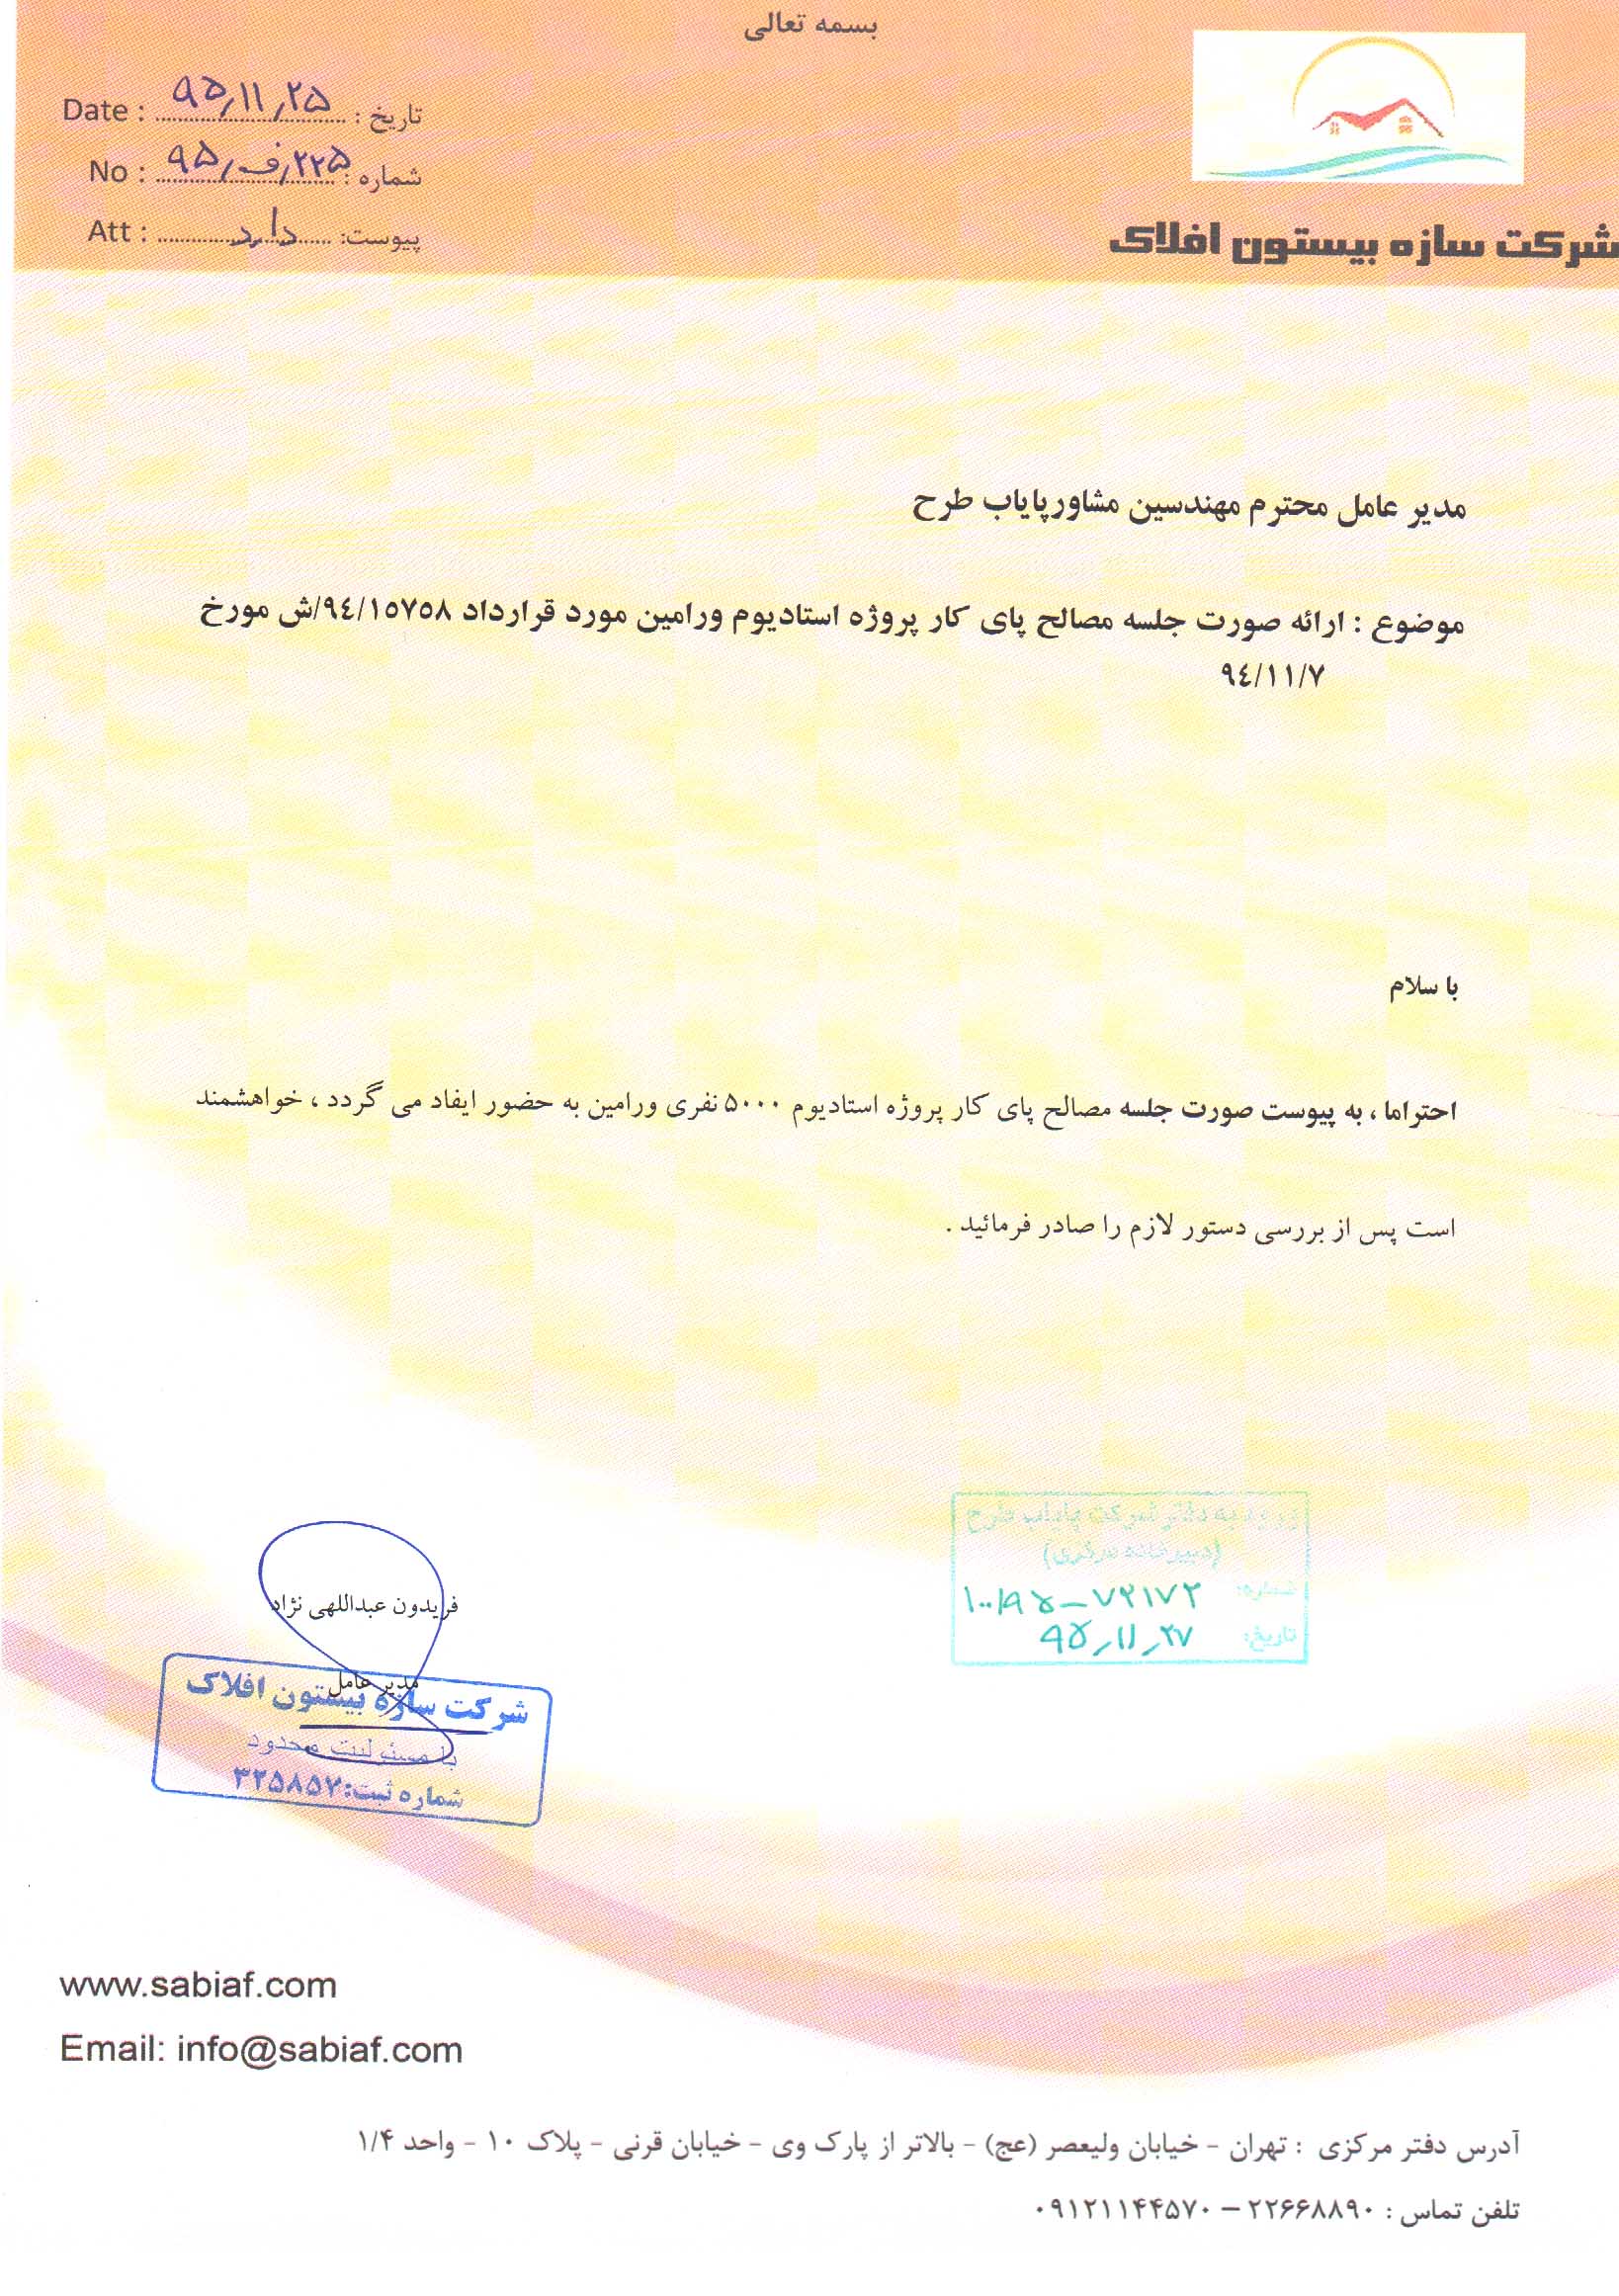 بسمه تعالی
تاریخ : ۹۵/۱۱/۲۵ Date :
شماره : ۲۲۵/ف/۹۵ No :
پیوست: دارد Att :
شرکت سازه بیستون افلاک
مدیر عامل محترم مهندسین مشاورپایاب طرح
موضوع : ارائه صورت جلسه مصالح پای کار پروژه استادیوم ورامین مورد قرارداد ۹٤/۱٥۷٥۸/ش مورخ
۹٤/۱۱/۷
با سلام
احتراما ، به پیوست صورت جلسه مصالح پای کار پروژه استادیوم ۵۰۰۰ نفری ورامین به حضور ایفاد می گردد ، خواهشمند
است پس از بررسی دستور لازم را صادر فرمائید .
ورود به دفتر شرکت پایاب طرح
(دبیرخانه مرکزی)
شماره: ۱۰۰/۹۵-۷۲۱۷۲
تاریخ: ۹۵/۱۱/۲۷
فریدون عبداللهی نژاد
مدیر عامل
شرکت سازه بیستون افلاک
با مسئولیت محدود
شماره ثبت: ۳۲۵۸۵۷
www.sabiaf.com
Email: info@sabiaf.com
آدرس دفتر مرکزی : تهران - خیابان ولیعصر (عج) - بالاتر از پارک وی - خیابان قرنی - پلاک ۱۰ - واحد ۱/۴
تلفن تماس : ۲۲۶۶۸۸۹۰ – ۰۹۱۲۱۱۴۴۵۷۰